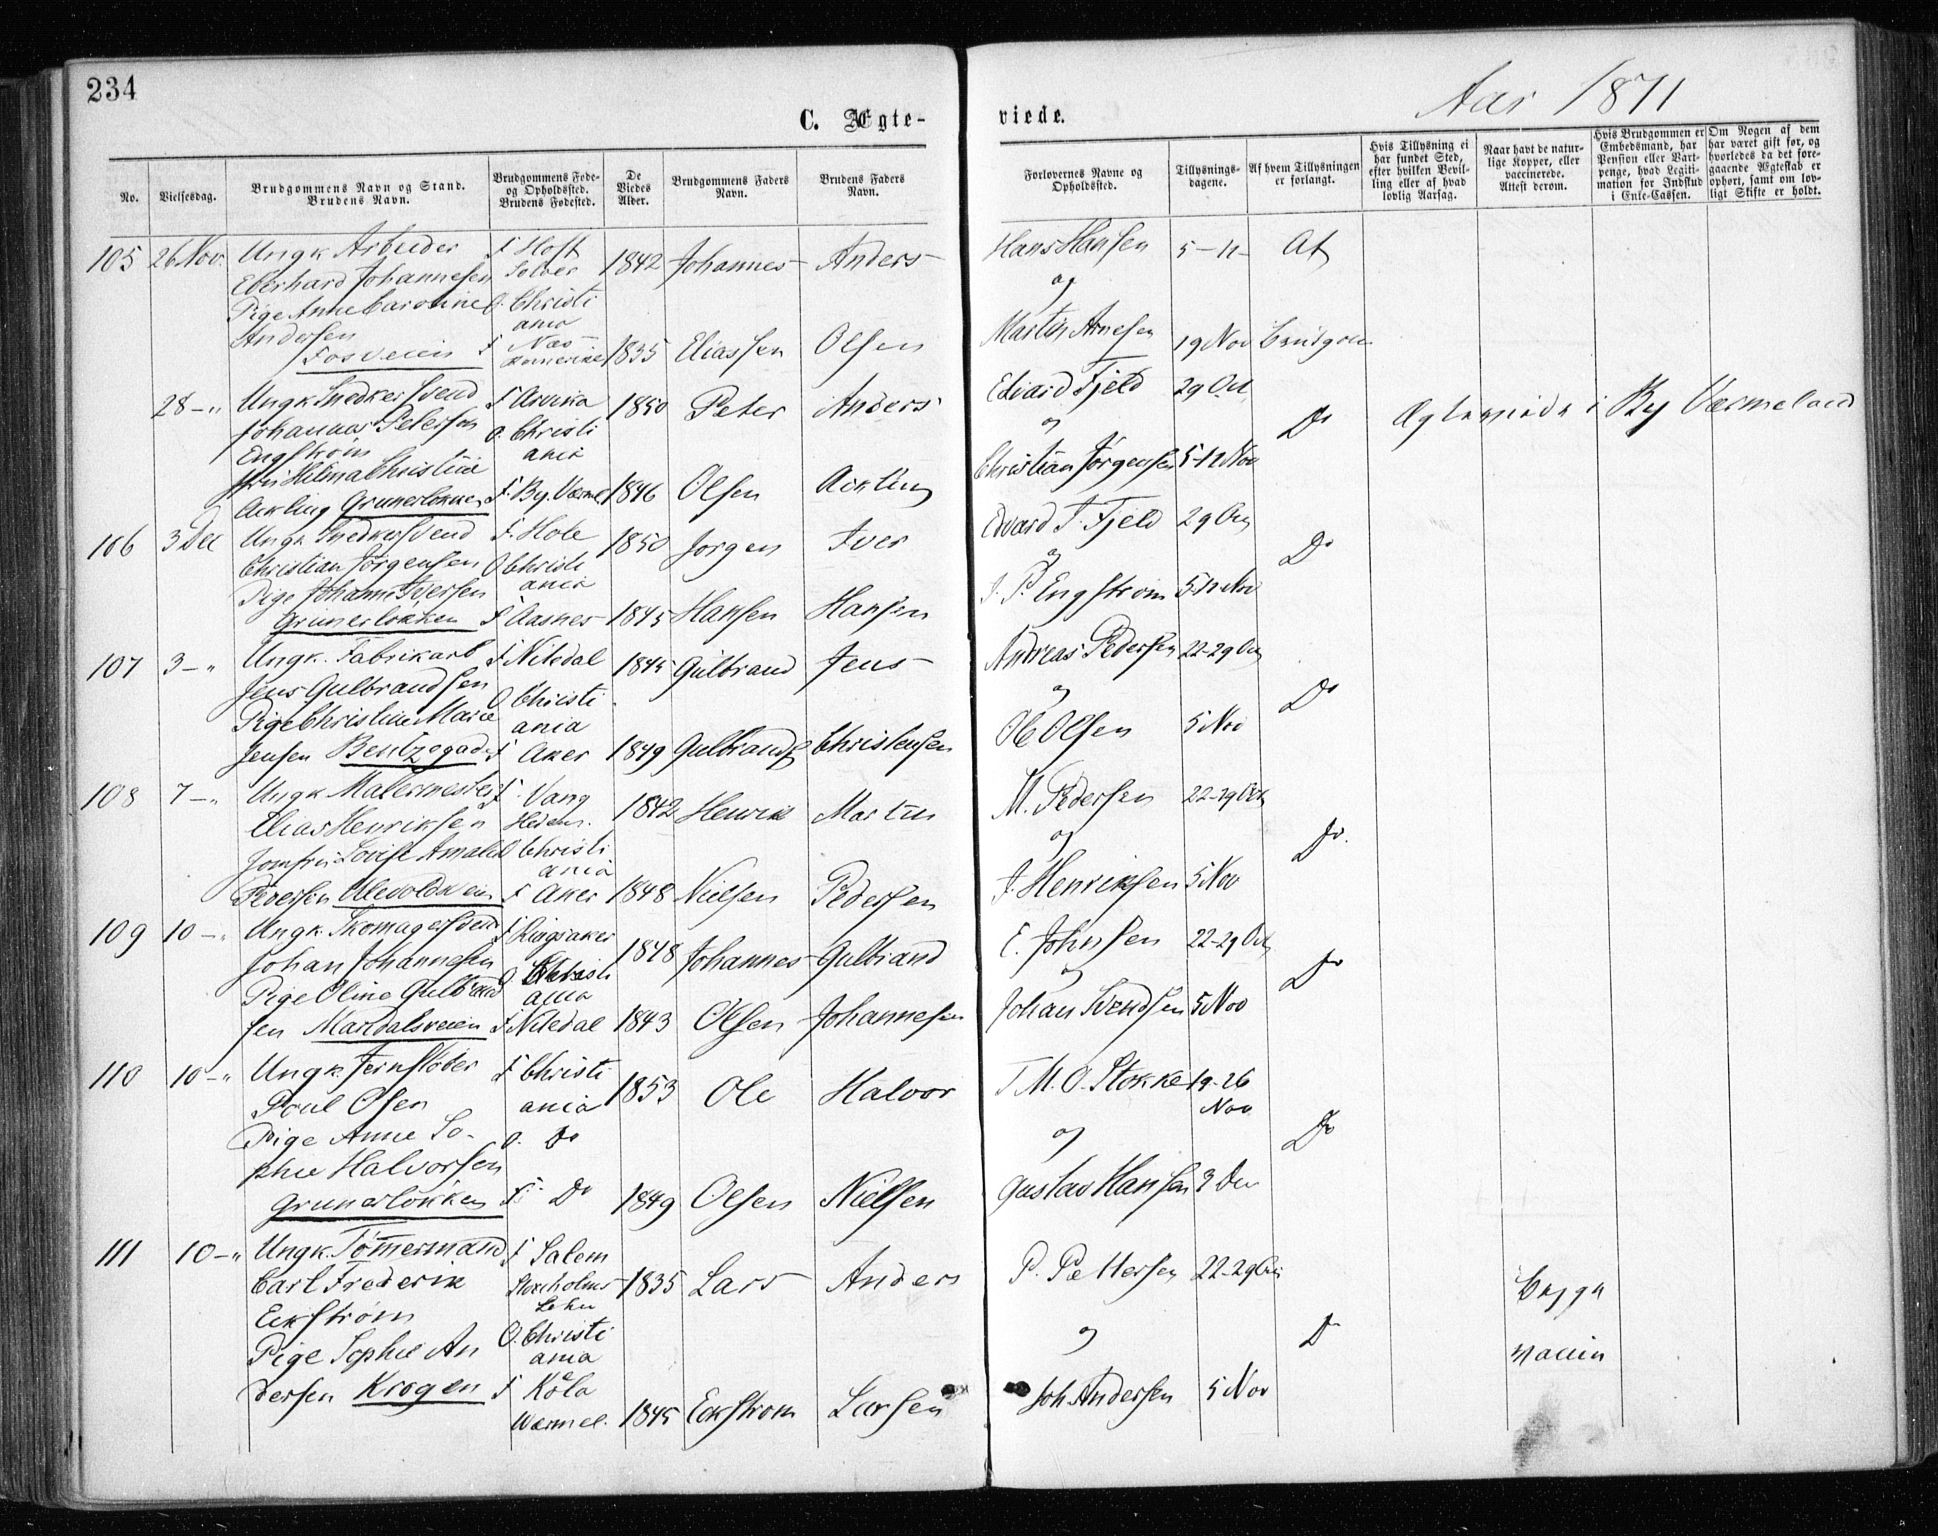 234
C. Ægte-
viede.
Aar 1871
No.
Vielsesdag.
Brudgommens Navn og Stand.
Brudens Navn.
Brudgommens Føde-
og Opholdssted.
Brudens Fødested.
De
Viedes
Alder.
Brudgommens Faders
Navn.
Brudens Faders
Navn.
Forlovernes Navne og
Opholdssted.
Tillysnings-
dagene.
Af hvem Tillysningen
er forlangt.
Hvis Tillysning ei
har fundet Sted,
efter hvilken Bevil-
ling eller af hvad
lovlig Aarsag.
Naar havt de natur-
lige Kopper, eller
vaccinerede.
Attest derom.
Hvis Brudgommen er
Embedsmand, har
Pension eller Vart-
penge, hvad Legiti-
mation for Indskud
i Enke-Cassen.
Om Nogen af dem
har været gift før, og
hvorledes da det fore-
gaaende Ægteskab er
ophørt, samt om lov-
ligt Skifte er holdt.
105 26 Nov. Ungk Arbeider
Eberhard Johannesen
Pige Anne Caroline
Andersen
Fosveien
F Hoff
Solver
O. Christi
ania
F Næs
Romerike
1842 Johannes Anders
1835 Eliassen Olsen
Hans Hansen 5-12 Af
og
Martin Arnesen 19 Nov brudgom
28 -" Ungk Snedkersvend
Johannes Peterson
Engstrøm
Jfru Hilma Christine
Ackling Grunerløkken
F Arvika
O. Christi
ania
F. By. Værmel
1850 Peter Anders
1846 Olsen Ackling
Edvard Fjeld 29 Oct
og Do
Christian Jørgensen 5-12 Nov
Ægteviede i By Værmeland
106 3 Dec Ungk Snedkersvend
Christian Jørgensen
Pige Johanne Iversen
Grunerløkken
F. Hole
O Christi
ania
F Aasnes
1850 Jørgen Iver
1845 Hansen Hansen
Edvard T. Fjeld 29 Oct
og Do
J. P. Engstrøm 5-12 Nov
107 3 -" Ungk. Fabrikarb
Jens Gulbrandsen
Pige Christine Marie
Jensen Bentzegaden
F Nitedal
O Christi
ania
F Aker
1845 Gulbrand Jens
1849 Gulbrands Christensen
Andreas Pedersen 22-29 Oct
og Do
Ole Olsen 5 Nov
108 7 -" Ungk Malermester
Elias Henriksen
Jomfru Lovise Amalie
Pedersen Ulevoldsveien
F. Vang
Hedem.
O Christi
ania
F Aker
1842 Henrik Martin
1848 Nielsen Pedersen
M. Pedersen 22-29 Oct
og Do.
J. Henriksen 5 Nov
109 10 -" Ungk Skomagersvend
Johan Johannesen
Pige Oline Gulbrand
sen Maridalsveien
F Ringsaker
O Christi
ania
F Nitedal
1848 Johannes Gulbrand
1843 Olsen Johannesen
E. Johnsen 22-29 Oct
og Do
Johan Svendsen 5 Nov
110 10 -" Ungk. Jernstøber
Poul Olsen
Pige Anne So-
phie Halvorsen
Grunerløkken
F Christi
ania
O. Do
F. Do
1853 Ole Halvor
1849 Olsen Nielsen
T. M. O. Stokke 19-26
Nov
og Do
Gustav Hansen 3 Dec
111 10 -" Ungk. Tømmermand
Carl Frederik
Eckstrøm
Pige Sophie An
dersen Krogen
F Salem
Stockholms
Lehn
O. Christi
ania
F Køla
Wærmel.
1835 Lars Anders
1845 Eckstrøm Larsen
P. Pettersen 22-29 Oct
og Do
Joh Andersen 5 Nov
Begge
vaccin